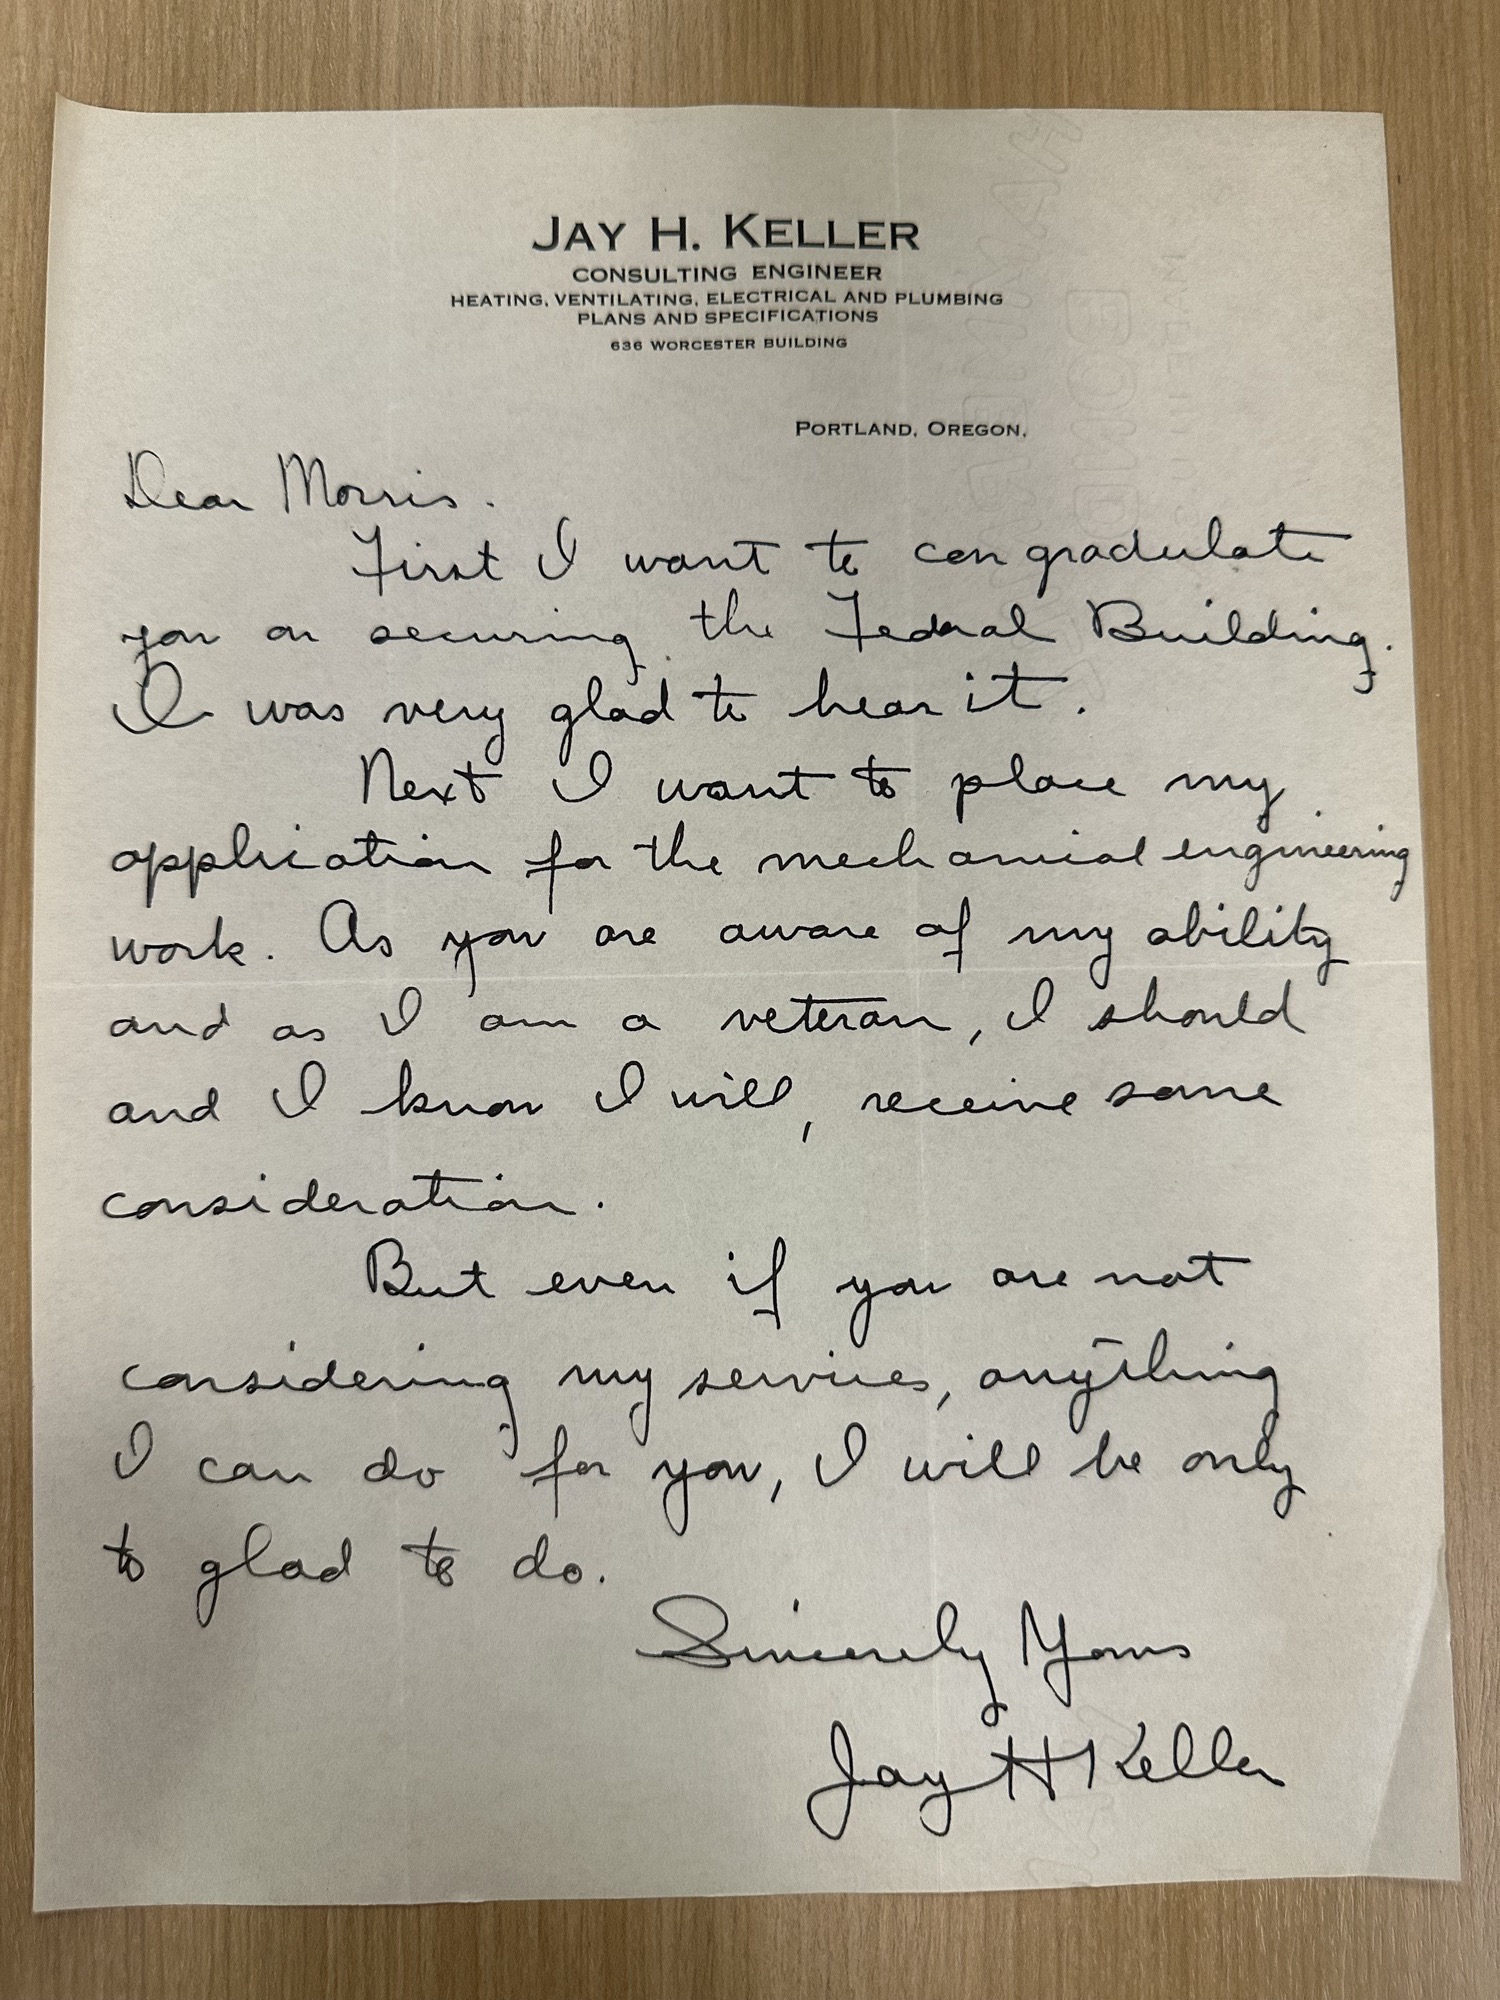 JAY H. KELLER
CONSULTING ENGINEER
HEATING, VENTILATING, ELECTRICAL AND PLUMBING
PLANS AND SPECIFICATIONS
636 WORCESTER BUILDING
PORTLAND, OREGON,
Dear Morris.
First I want to congradulate
you on securing the Federal Building.
I was very glad to hear it.
Next I want to place my
application for the mechanical engineering
work. As you are aware of my ability
and as I am a veteran, I should
and I know I will, receive some
consideration.
But even if you are not
considering my services, anything
I can do for you, I will be only
to glad to do.
Sincerely Yours
Jay H Keller